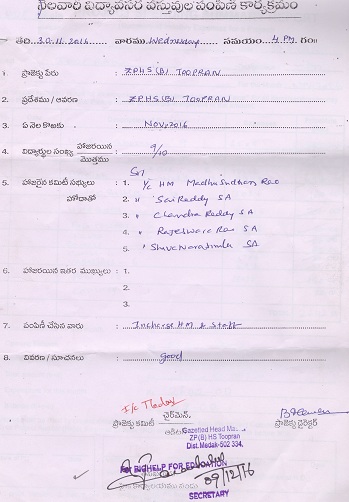 నెలవారి విద్యావసర వస్తువుల పంపిణీ కార్యక్రమం
తేది. 30.11.2016 ...... వారము Wednesday ...... సమయం. 4 PM. గం॥
1. ప్రాజెక్టు పేరు : ZPHS (B) TOOPRAN
2. ప్రదేశము / ఆవరణ : ZPHS (B) TOOPRAN
3. ఏ నెల కొఱకు : NOV, 2016
4. విద్యార్థుల సంఖ్య హాజరయిన / మొత్తము : 9/10
5. హాజరైన కమిటీ సభ్యులు : 1. I/c HM Madhusudhan Rao
హోదాతో 2. " Sai Reddy SA
3. " Chandra Reddy SA
4. " Rajeshwar Rao SA
5. " Shiva Narasimlu SA
6. హాజరయిన ఇతర ముఖ్యులు : 1.
2.
3.
7. పంపిణీ చేసిన వారు : Incharge HM & Staff
8. వివరణ / సూచనలు : good
ఛైర్మెన్,
ప్రాజెక్టు కమిటీ
ప్రాజెక్టు డైరెక్టర్
Gazetted Head Ma
ZP(B) HS Toopran
Dist. Medak-502 334.
For BIGHELP FOR EDUCATION
09/12/16
SECRETARY